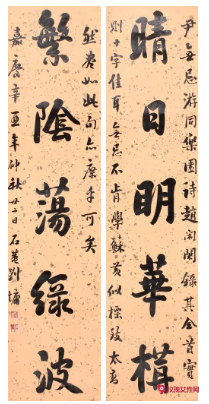 尹無忌游同樂園詩趙閑閑錄其全首實
晴日明華構
則十字佳耳無忌不肯學蘇黃似標致太高
然如此句亦手可矣
繁陰蕩綠波
嘉慶辛酉年仲秋廿二日石菴劉墉